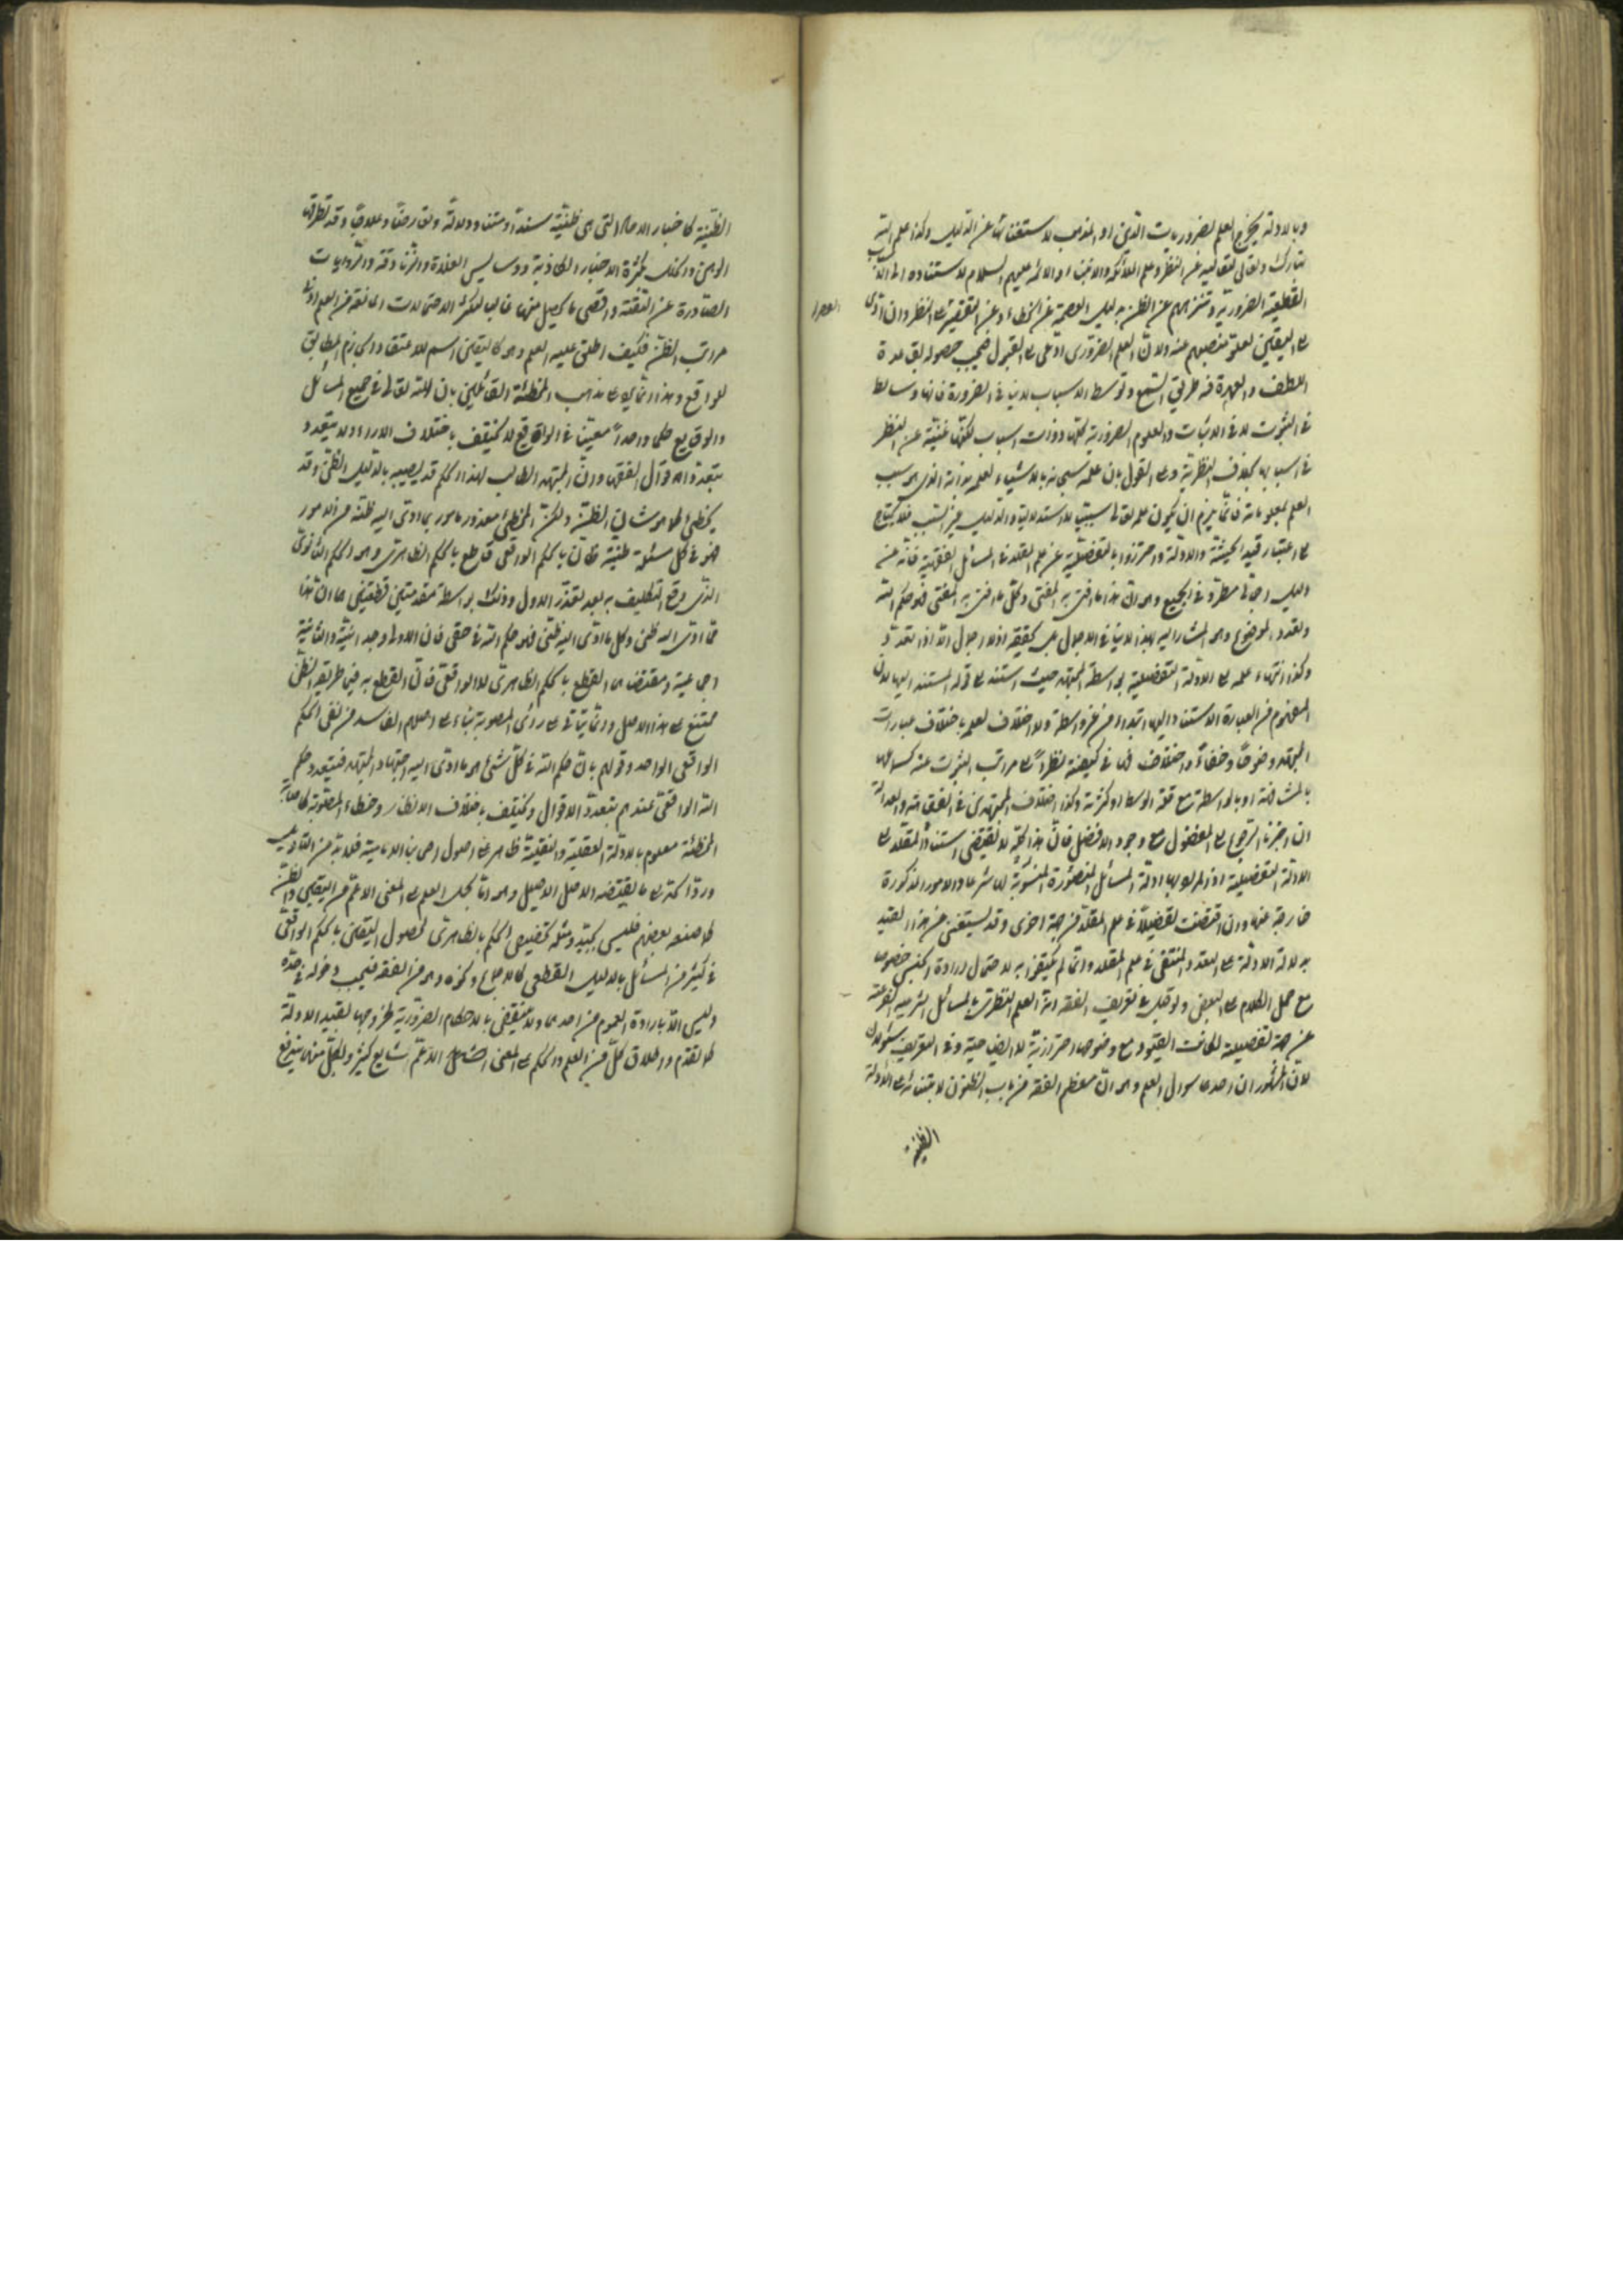 وبالادلة يخرج العلم بضروريات الدين او المذهب لاستغنائها عن الدليل وكذا علم الله
تبارك وتعالى لتعاليه عن النظر وعلم الملائكة والانبياء والائمه عليهم السلام لاستناده الى
القطعية الضرورية وتنزههم عن الظن بدليل العصمة عن الخطاء وعن التقصير في النظر وان ادى
الى اليقين لعلو منصبهم عنه ولان العلم الضروري ادعى الى القبول فيجب حصوله بقاعدة
اللطف والعهدة فيه طريق السمع وتوسط الاسباب لا ينافي الضرورة فانها وسايط
في الثبوت لا في الاثبات والعلوم الضرورية كلها ذوات اسباب لكنها غنية عن النظر
في اسبابها بخلاف النظرية وعلى القول بان علمه سبحانه بالاشياء لعلمه بذاته الذي هو سبب
العلم بمعلوماته فانما يلزم ان يكون علمه تعالى سببيا لا استدلاليا والدليل غير السبب فلا يحتاج
الى اعتبار قيد الحيثية والادلة واحترزوا بالتفصيلية عن علم المقلد في المسائل الفقهية فانه عن
دليل اجمالي مطرد في الجميع وهو ان هذا ما افتى به المفتي وكل ما افتى به المفتي فهو حكم الله
وتعدد الموضوع وهو المشار اليه بهذا لا ينافي الاجمال بل يحققه اذ لا اجمال الا اذا تعدد
وكذا انتهاء علمه الى الادلة التفصيلية بواسطة المجتهد حيث استند الى قوله المستند اليها لان
المفهوم من العبارة الاستناد اليها ابتداء من غير واسطة ولا اختلاف لعلمه باختلاف عبارات
المجتهد وضوحا وخفاء واختلاف في كيفيته نظرا الى مراتب الثبوت عنه كسماعها
بالمشافهة او بالواسطة مع قلة الوسط او كثرته وكذا اختلاف المجتهدين في الفقاهة والعدالة
ان اجزنا الرجوع الى المفضول مع وجود الافضل فان هذا كله لا يقتضي استناد المقلد الى
الادلة التفصيلية اذ المراد بها ادلة المسائل المتصورة المنسوبة الى الشرع والامور المذكورة
خارجة عنها وان اقتضت تفصيلا في علم المقلد من جهة اخرى وقد يستغنى عن هذا القيد
بدلالة الادلة على التعدد المنتفي في علم المقلد وانما لم يكتف به لاحتمال ارادة الجنس خصوصا
مع حمل الكلام على البعض ولو قيل في تعريف الفقه انه العلم النظري بالمسائل الشرعية الفرعية
عن جهة تفصيلية لكانت القيود مع وضوحها احترازية لا ايضاحية وفي التعريف سؤالان
لان المشهوران احدهما سؤال العلم وهو ان معظم الفقه من باب الظنون لابتنائه على الادلة
الظنية
الظنية كاخبار الاحاد التي هي ظنية سندا ومتنا ودلالة وتعارضا وعلاجا وقد تطرقها
الوهن والحكك بكثرة الاخبار الكاذبة ودسايس الغلاة والزنادقة والروايات
الصادرة عن التقية واقصى ما يحصل منها غالبا لكثرة الاحتمالات المانعة من العلم ادنى
مراتب الظن فكيف اطلق عليه العلم وهو كاليقين اسم للاعتقاد الجازم المطابق
للواقع وهذا انما يرد على مذهب المخطئة القائلين بان لله تعالى في جميع المسائل
والوقايع حكما واحدا معينا في الواقع لا يختلف باختلاف الاراء ولا يتعدد
بتعدد اقوال الفقهاء وان المجتهد الطالب لهذا الحكم قد يصيبه بالدليل الظني وقد
يخطئ كما هو شان الظن ولكن المخطئ معذور مامور بما ادى اليه ظنه من الامور
فهو في كل مسئلة ظنية ظان بالحكم الواقعي قاطع بالحكم الظاهري وهو الحكم الثانوي
الذي وقع التكليف به بعد تعذر الاول وذلك بواسطة مقدمتين قطعيتين هما ان هذا
مما ادى اليه ظني وكل ما ادى اليه ظني فهو حكم الله في حقي فان الاولى وجدانية والثانية
اجماعية ومقتضاهما القطع بالحكم الظاهري لا الواقعي فان القطع به في طريقه الظن
ممتنع على هذا الاصل وانما يتاتى على راي المصوبة بناء على اصلهم الفاسد من نفي الحكم
الواقعي الواحد وقولهم بان حكم الله في كل شئ هو ما ادى اليه اجتهاد المجتهد فيتعدد حكم
الله الواقعي عندهم بتعدد الاقوال ويختلف باختلاف الانظار وخطاء المصوبة كاصابة
المخطئة معلوم بالادلة العقلية والنقلية ظاهر على اصول اصحابنا الامامية فلا بد من التاويل
ورد الحد الى ما يقتضيه الاصل الاصيل وهو اما بحمل العلم على المعنى الاعم من اليقين والظن
كما صنعه بعضهم فليس بجيد ومثله تخصيص الحكم بالظاهري لحصول اليقين بالحكم الواقعي
في كثير من المسائل بالدليل القطعي كالاجماع ونحوه وهو من الفقه فيجب دخوله في حده
وليس الا بارادة العموم من احدهما ولا ينتقض بالاحكام الضرورية لخروجها بقيد الادلة
كما تقدم واطلاق كل من العلم والحكم على المعنى الشامل الاعم شايع كثير ولكل منهما يندفع